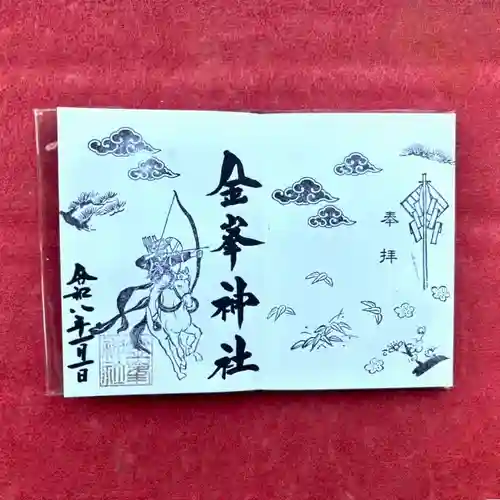 奉拝
金峯神社
令和八年一月一日